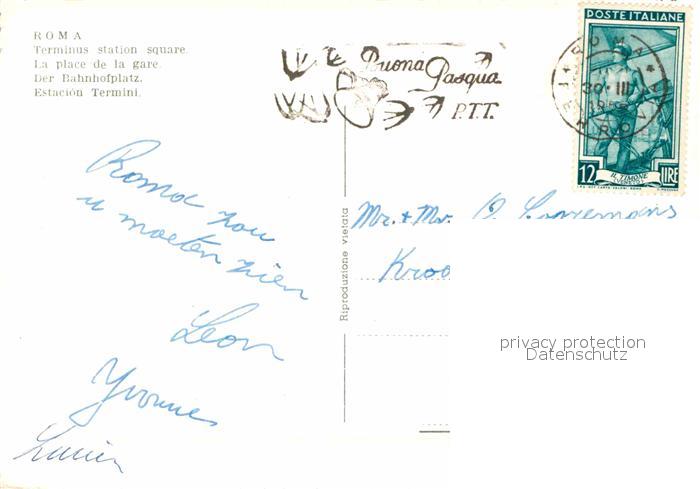 ROMA
Terminus station square.
La place de la gare.
Der Bahnhofplatz.
Estación Termini.
Buona
Pasqua
P.T.T.
POSTE ITALIANE
ROMA
30·III
FERROVIA
12 IL TIMONE LIRE
Roma zou
u moeten zien
Leon
Yvonne
Lucien
Riproduzione vietata
Mr. + Mv.
Kroo
privacy protection
Datenschutz